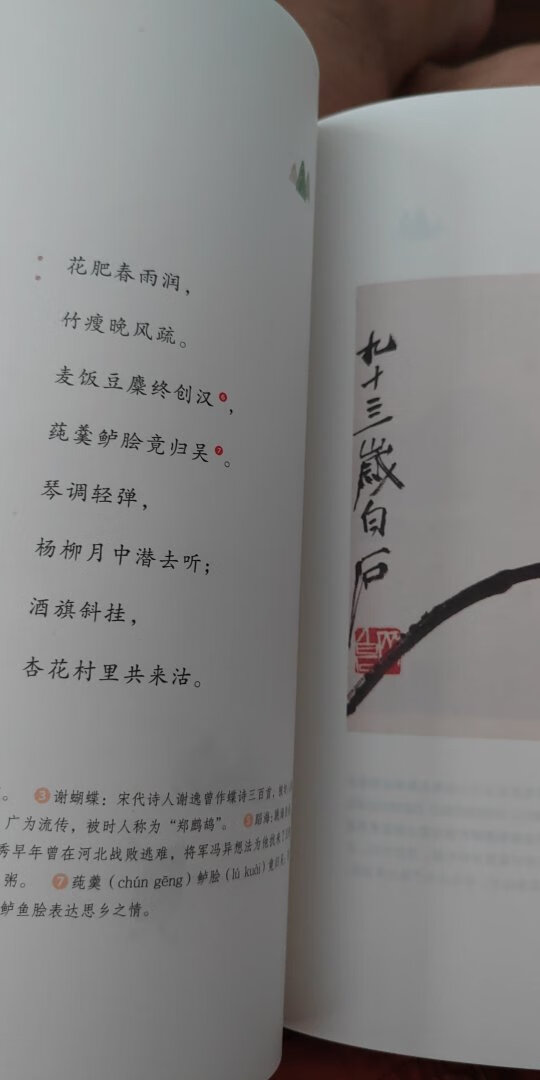 花肥春雨润，
竹瘦晚风疏。
麦饭豆麋终创汉❻，
莼羹鲈脍竟归吴❼。
琴调轻弹，
杨柳月中潜去听；
酒旗斜挂，
杏花村里共来沽。
。 ❸谢蝴蝶：宋代诗人谢逸曾作蝶诗三百首，
广为流传，被时人称为“郑鹧鸪”。 ❺
秀早年曾在河北战败逃难，将军冯异想法为他
粥。 ❼莼羹（chún gēng）鲈脍（lú kuài）
鲈鱼脍表达思乡之情。
九十三岁白石